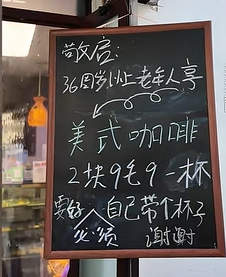 敬启:
36周岁以上老年人享
美式咖啡
2块9毛9一杯
要好
必须
自己带个杯子
谢谢